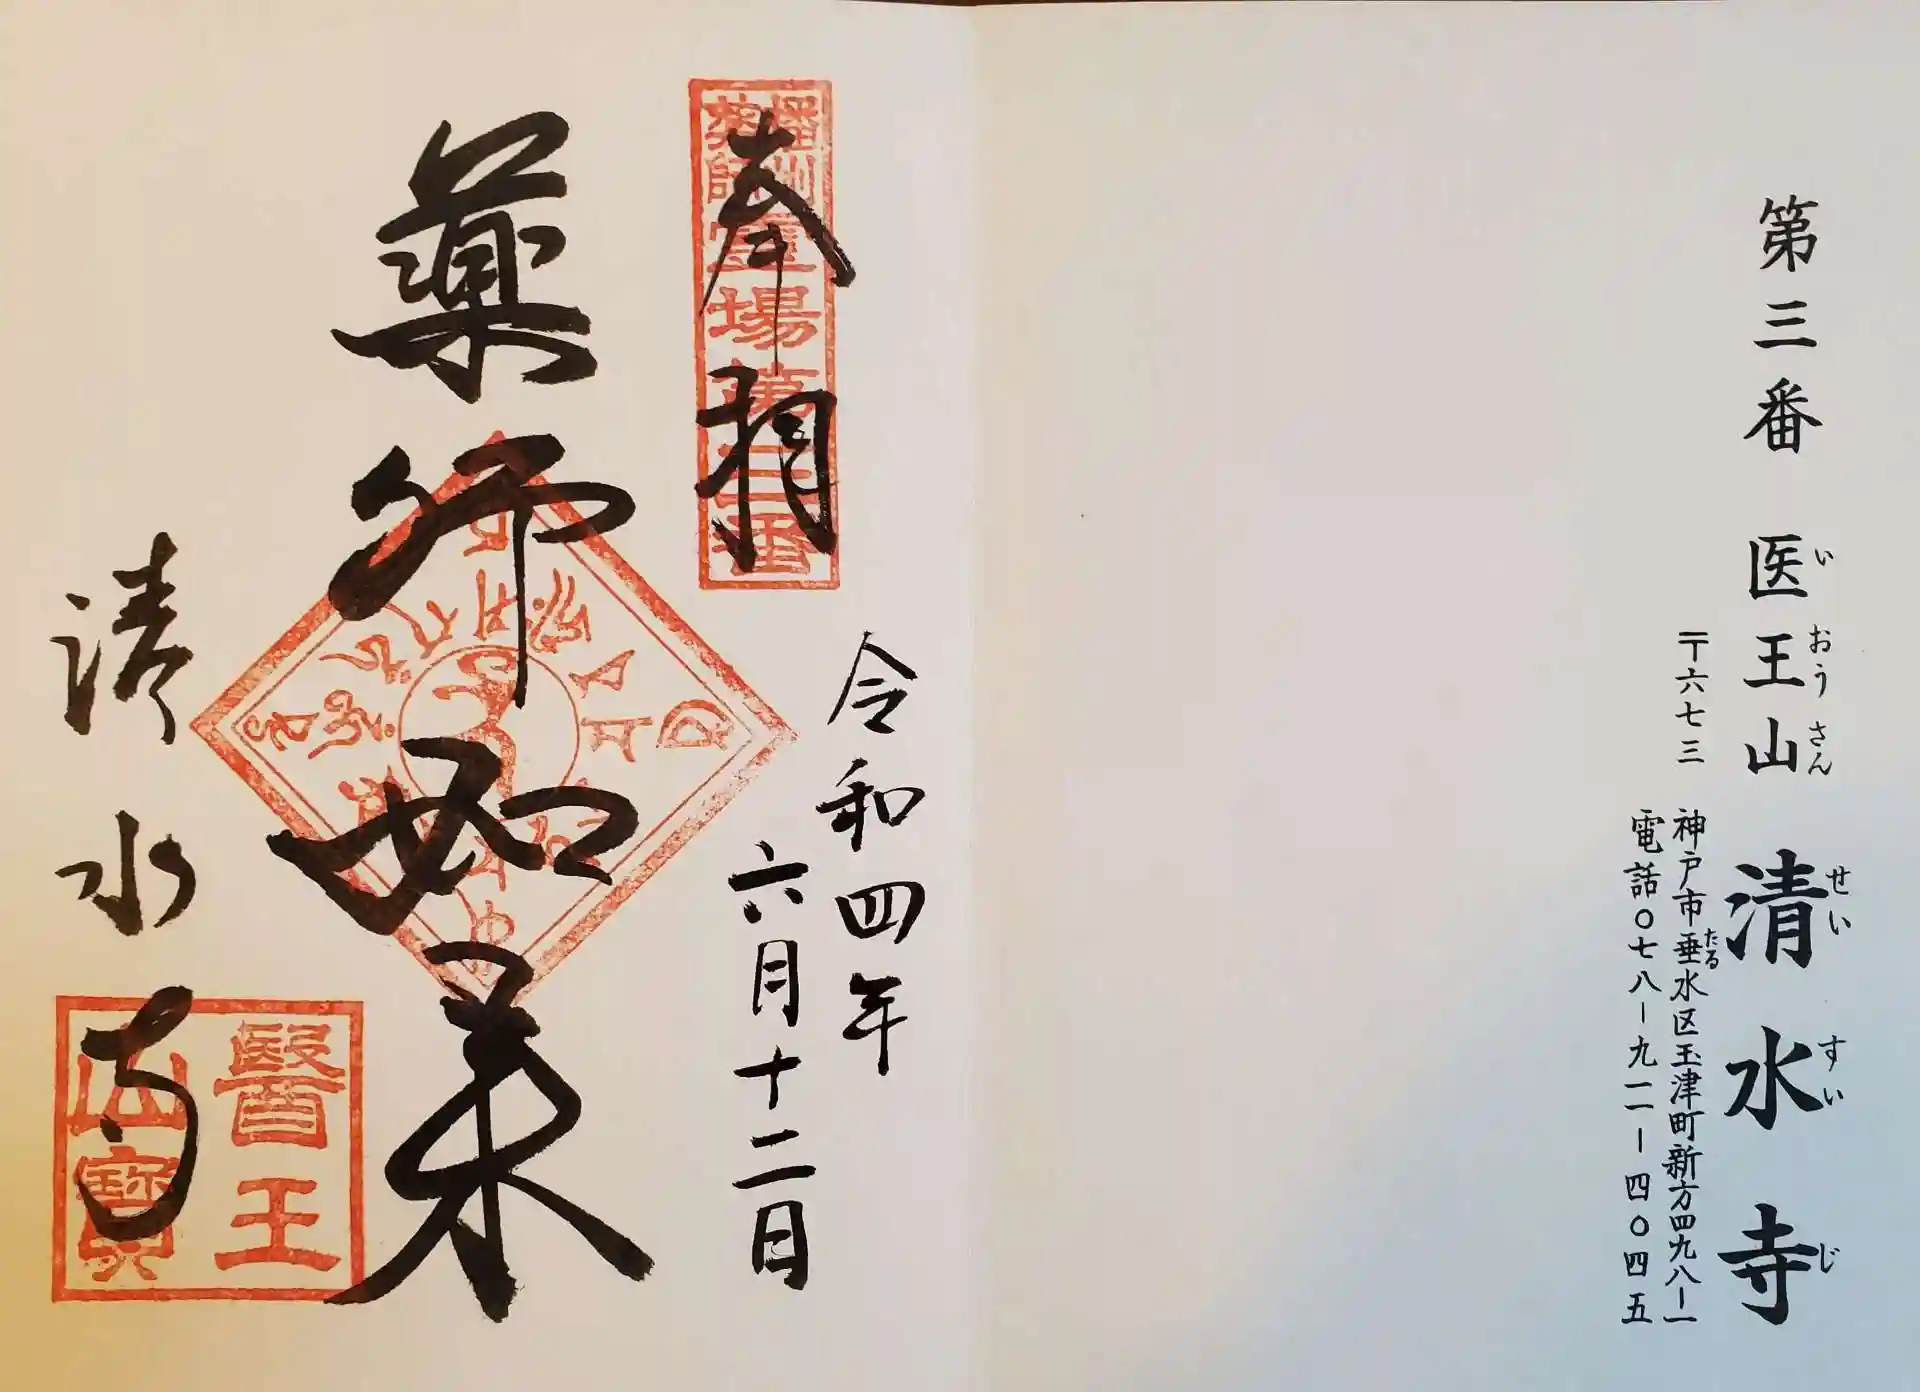 第三番 医王山 清水寺
いおうさん せいすいじ
〒六七三 神戸市垂水区玉津町新方四九八ー一
たる
電話〇七八ー九一一ー四〇四五
播州薬師霊場第三番
奉拝
令和四年
六月十二日
薬师如来
清水寺
醫王
山寳